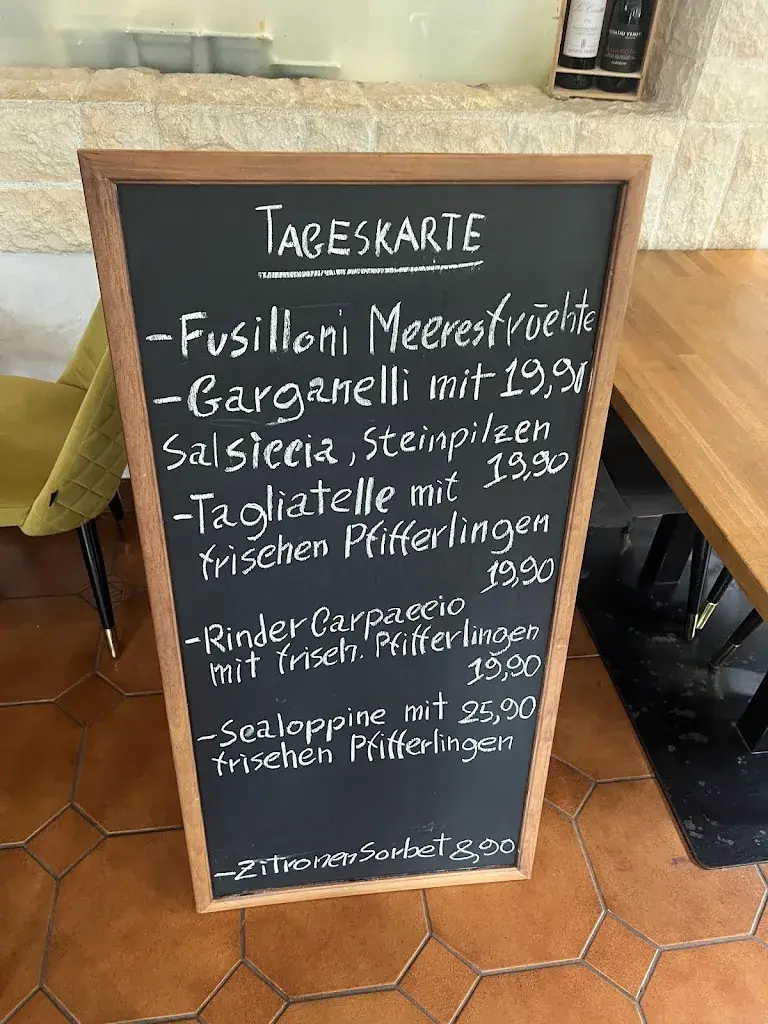 TAGESKARTE
- Fusilloni Meeresfrüchte
- Garganelli mit 19,90
Salsiccia, Steinpilzen
19,90
- Tagliatelle mit
frischen Pfifferlingen
19,90
- Rinder Carpaccio
mit frisch. Pfifferlingen
19,90
- Scaloppine mit 25,90
frischen Pfifferlingen
- Zitronen Sorbet 8,90